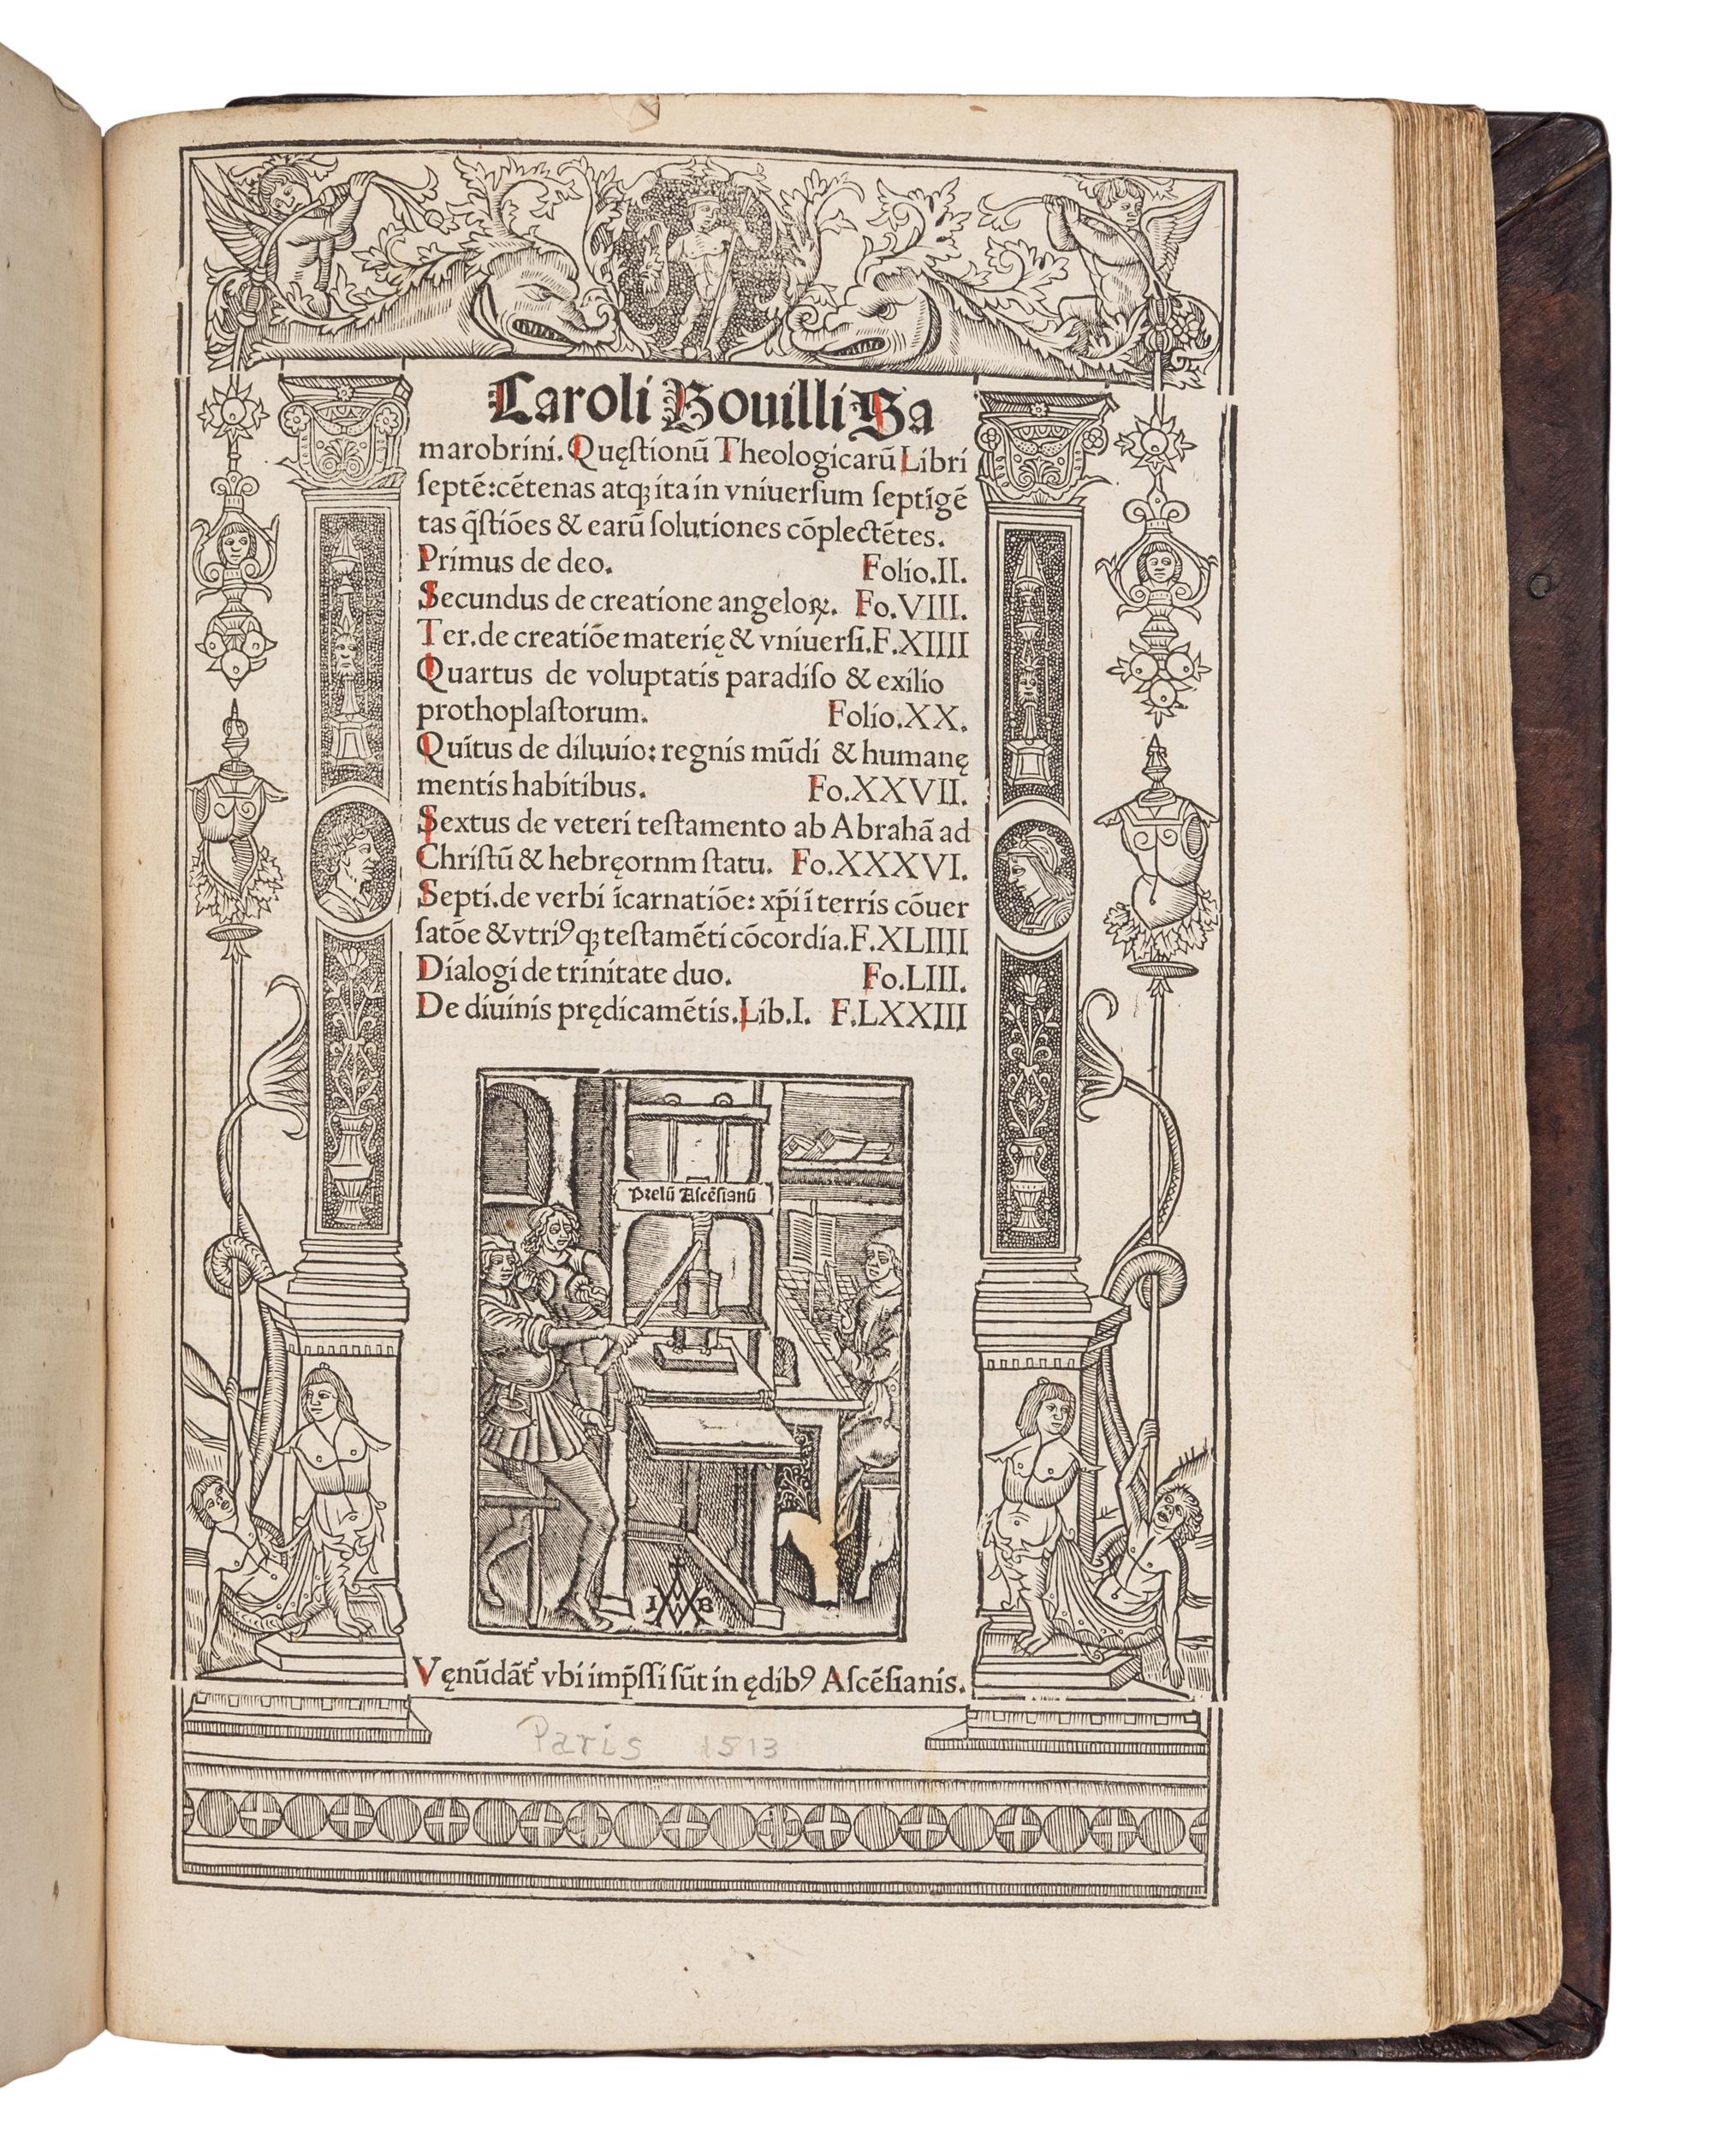 Caroli Bouilli Sa
marobrini. Quęſtionū Theologicarū Libri
ſeptē: cētenas atqꝫ ita in vniuerſum ſeptīgē
tas q̄ſtiōes & earū ſolutiones cōplectētes.
Primus de deo. Folio.II.
Secundus de creatione angeloꝝ. Fo.VIII.
Ter. de creatiōe materię & vniuerſi. F.XIIII
Quartus de voluptatis paradiſo & exilio
prothoplaſtorum. Folio.XX.
Quītus de diluuio: regnis mūdi & humanę
mentis habitibus. Fo.XXVII.
Sextus de veteri teſtamento ab Abrahā ad
Chriſtū & hebręornm ſtatu. Fo.XXXVI.
Septi. de verbi īcarnatiōe: xp̄i ī terris cōuer
ſatōe & vtriꝰqꝫ teſtamēti cōcordia. F.XLIIII
Dialogi de trinitate duo. Fo.LIII.
De diuinis prędicamētis. Lib.I. F.LXXIII
Prelū Aſcēſianū
I B
Vęnūdāt᷑ vbi imp̄ſſi ſūt in ędibꝰ Aſcēſianis.
Paris 1513